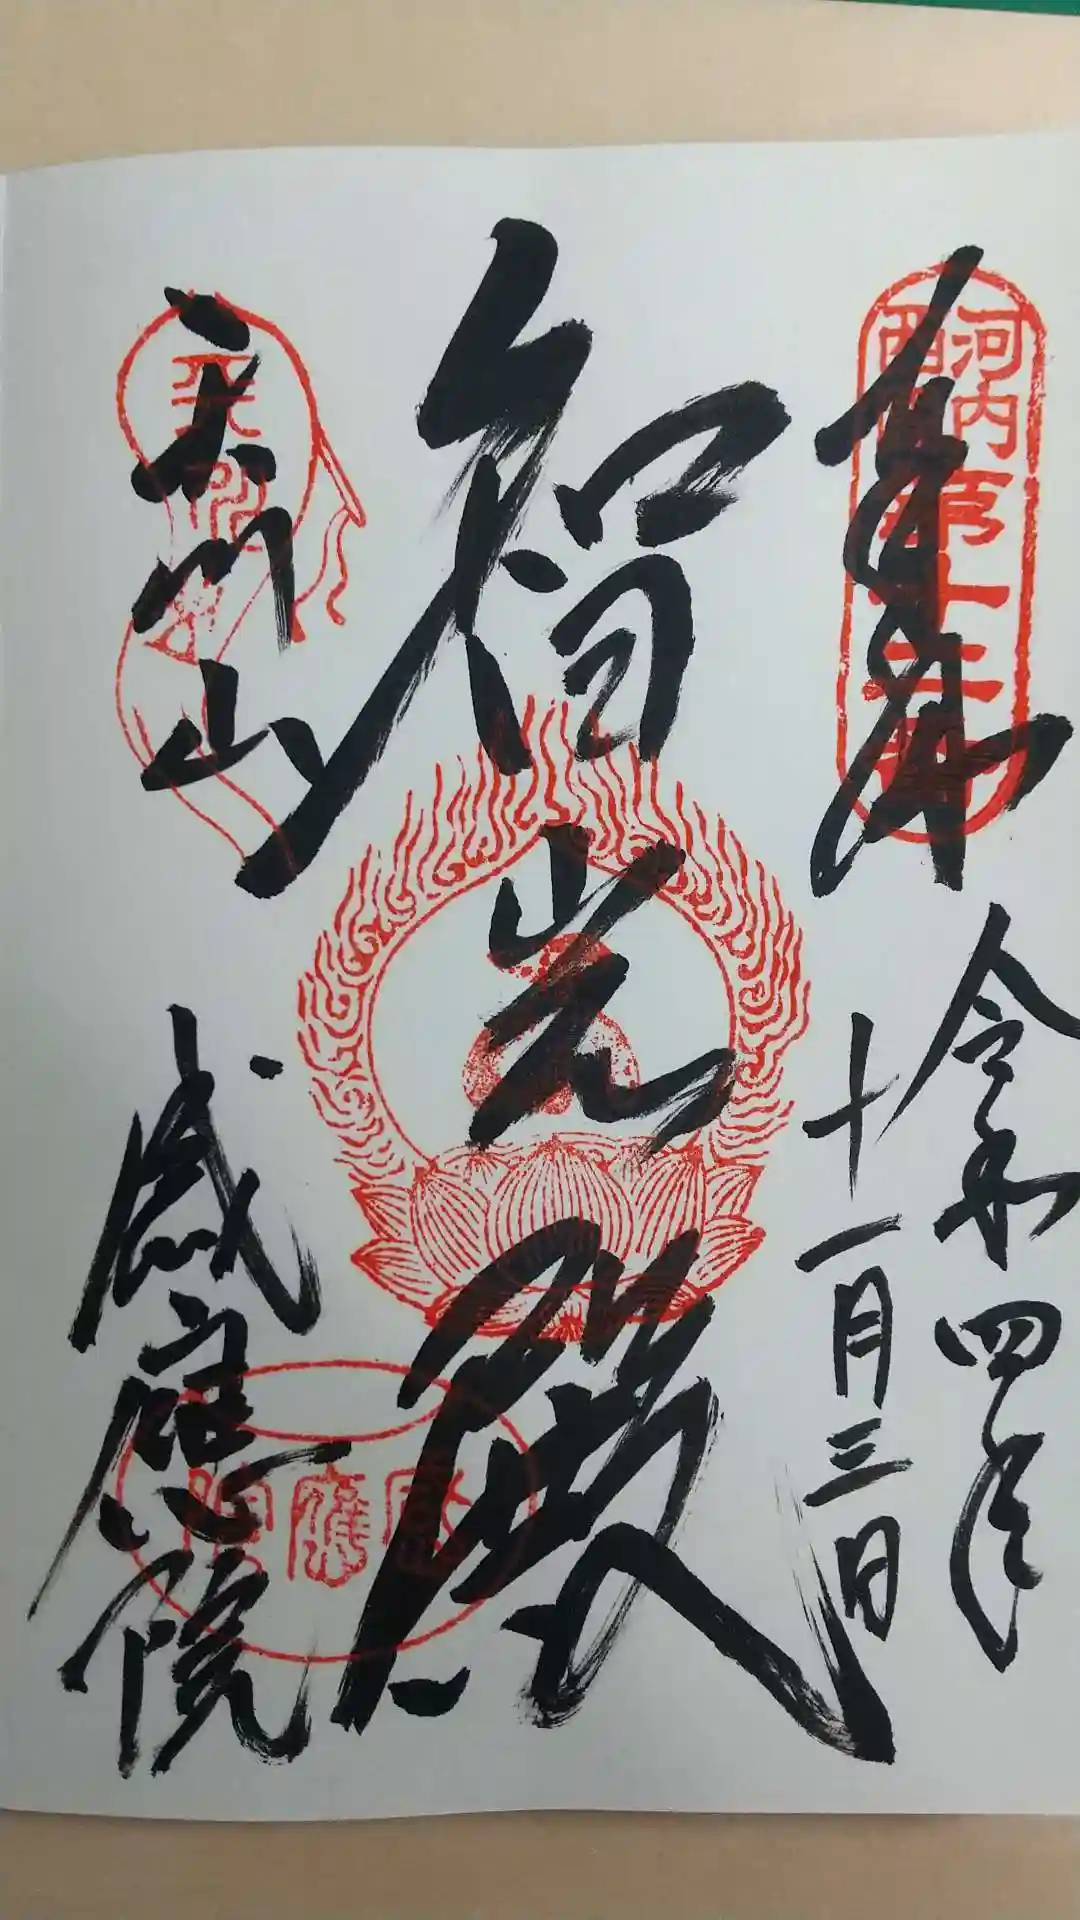 奉拝
河内
西国
第十二番
令和四年
十一月三日
智光殿
天川山
感應院